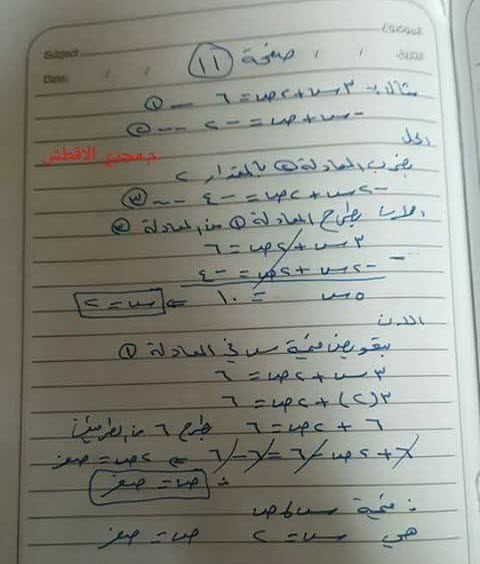 الموضوع
Subject
التاريخ / /
Date: / /
صفحة ١١
مثال ب ٣س + ٢ص = ٦ -- ①
-س + ص = -٢ -- ②
الحل
م.مجدي الاقطش
بضرب المعادلة ② بالمقدار ٢
-٢س + ٢ص = -٤ -- ③
الآن بطرح المعادلة ① من المعادلة ③
٣س + ٢ص = ٦
- -٢س + ٢ص = -٤
٥س = ١٠ ⇐ س = ٢
الان
بتعويض قيمة س في المعادلة ①
٣س + ٢ص = ٦
٣(٢) + ٢ص = ٦
٦ + ٢ص = ٦ بطرح ٦ من الطرفين
٦ + ٢ص - ٦ = ٦ - ٦ ⇐ ٢ص = صفر
∴ ص = صفر
∴ قيمة س، ص
هي س = ٢ ص = صفر